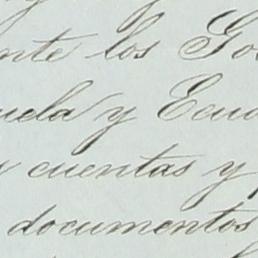 nte los Go
uela y Ecua
cuentas y
documentos